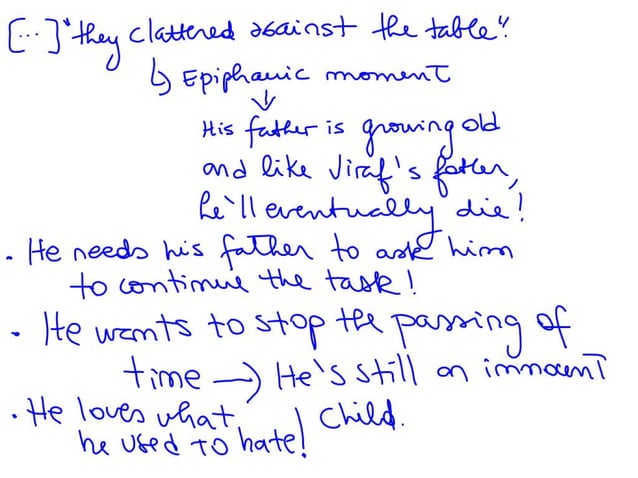 [...] "they clattered against the table".
↳ Epiphanic moment
↓
His father is growing old
and like Viraf's father,
he'll eventually die!
• He needs his father to ask him
to continue the task!
• He wants to stop the passing of
time → He's still an innocent
child.
• He loves what
he used to hate!